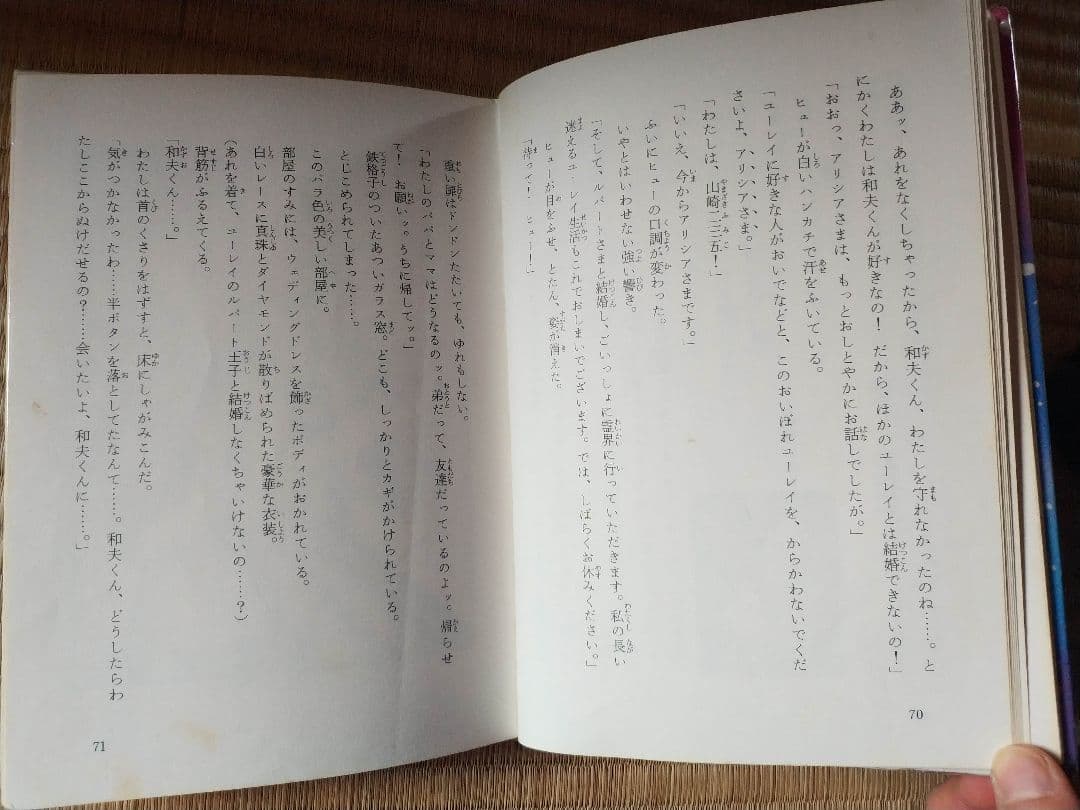 ああッ、あれをなくしちゃったから、和夫くん、わたしを守れなかったのね……。と
にかくわたしは和夫くんが好きなの！　だから、ほかのユーレイとは結婚できないの！」
「おおっ、アリシアさまは、もっとおしとやかにお話しでしたが。」
ヒューが白いハンカチで汗をふいている。
「ユーレイに好きな人がおいでなどと、このおいぼれユーレイを、からかわないでくだ
さいよ、アリシアさま。」
「わたしは、山崎二三五！」
「いいえ、今からアリシアさまです。」
ふいにヒューの口調が変わった。
いやとはいわせない強い響き。
「そして、ルパートさまと結婚し、ごいっしょに霊界に行っていただきます。私の長い
迷えるユーレイ生活もこれでおしまいでございます。では、しばらくお休みください。」
ヒューが目をふせ、とたん、姿が消えた。
「待って！　ヒュー！」
70
重い扉はドンドンたたいても、ゆれもしない。
「わたしのパパとママはどうなるのッ。弟だって、友達だっているのよッ。帰らせ
て！　お願いッ。うちに帰してッ。」
鉄格子のついたあついガラス窓。どこも、しっかりとカギがかけられている。
とじこめられてしまった……。
このバラ色の美しい部屋に。
部屋のすみには、ウェディングドレスを飾ったボディがおかれている。
白いレースに真珠とダイヤモンドが散りばめられた豪華な衣装。
（あれを着て、ユーレイのルパート王子と結婚しなくちゃいけないの……？）
背筋がふるえてくる。
「和夫くん……。」
わたしは首のくさりをはずすと、床にしゃがみこんだ。
「気がつかなかったわ……半ボタンを落としてたなんて……。和夫くん、どうしたらわ
たしここからぬけだせるの？……会いたいよ、和夫くんに……。」
71